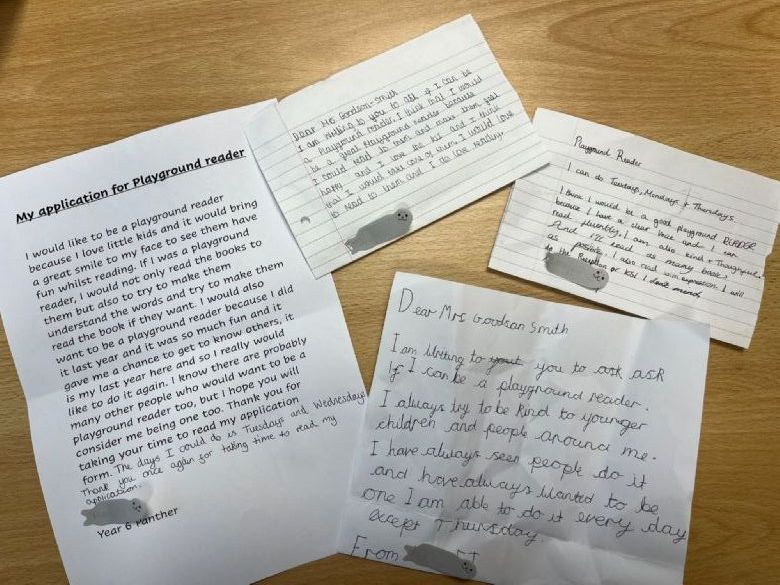 My application for Playground reader
I would like to be a playground reader
because I love little kids and it would bring
a great smile to my face to see them have
fun whilst reading. If I was a playground
reader, I would not only read the books to
them but also to try to make them
understand the words and try to make them
read the book if they want. I would also
want to be a playground reader because I did
it last year and it was so much fun and it
gave me a chance to get to know others, it
is my last year here and so I really would
like to do it again. I know there are probably
many other people who would want to be a
playground reader too, but I hope you will
consider me being one too. Thank you for
taking your time to read my application
form. The days I could do is Tuesdays and Wednesdays
Thank you once again for taking time to read my
application.
Year 6 Panther
Dear Mrs Goodson-Smith
I am writing to you to ask if I can be
a playground reader. I think that I would
be a great playground reader because
I could read to them and make them feel
happy and I love the ks1 and I think
that I would take care of them. I would love
to read to them and I do love reading.
Playground Reader
I can do Tuesdays, Mondays + Thursdays.
I think I would be a good playground READER
because I have a clear voice and I can
read fluently. I am also kind + thoughtful.
And I'll read as many books
as possible. I also read with expression. I will
do the Reception or KS1 I don't mind.
Dear Mrs Goodson Smith
I am writing to you to ask ask
If I can be a playground reader.
I always try to be kind to younger
children and people around me.
I have always seen people do it
and have always wanted to be
one I am able to do it every day
except Thursday.
From